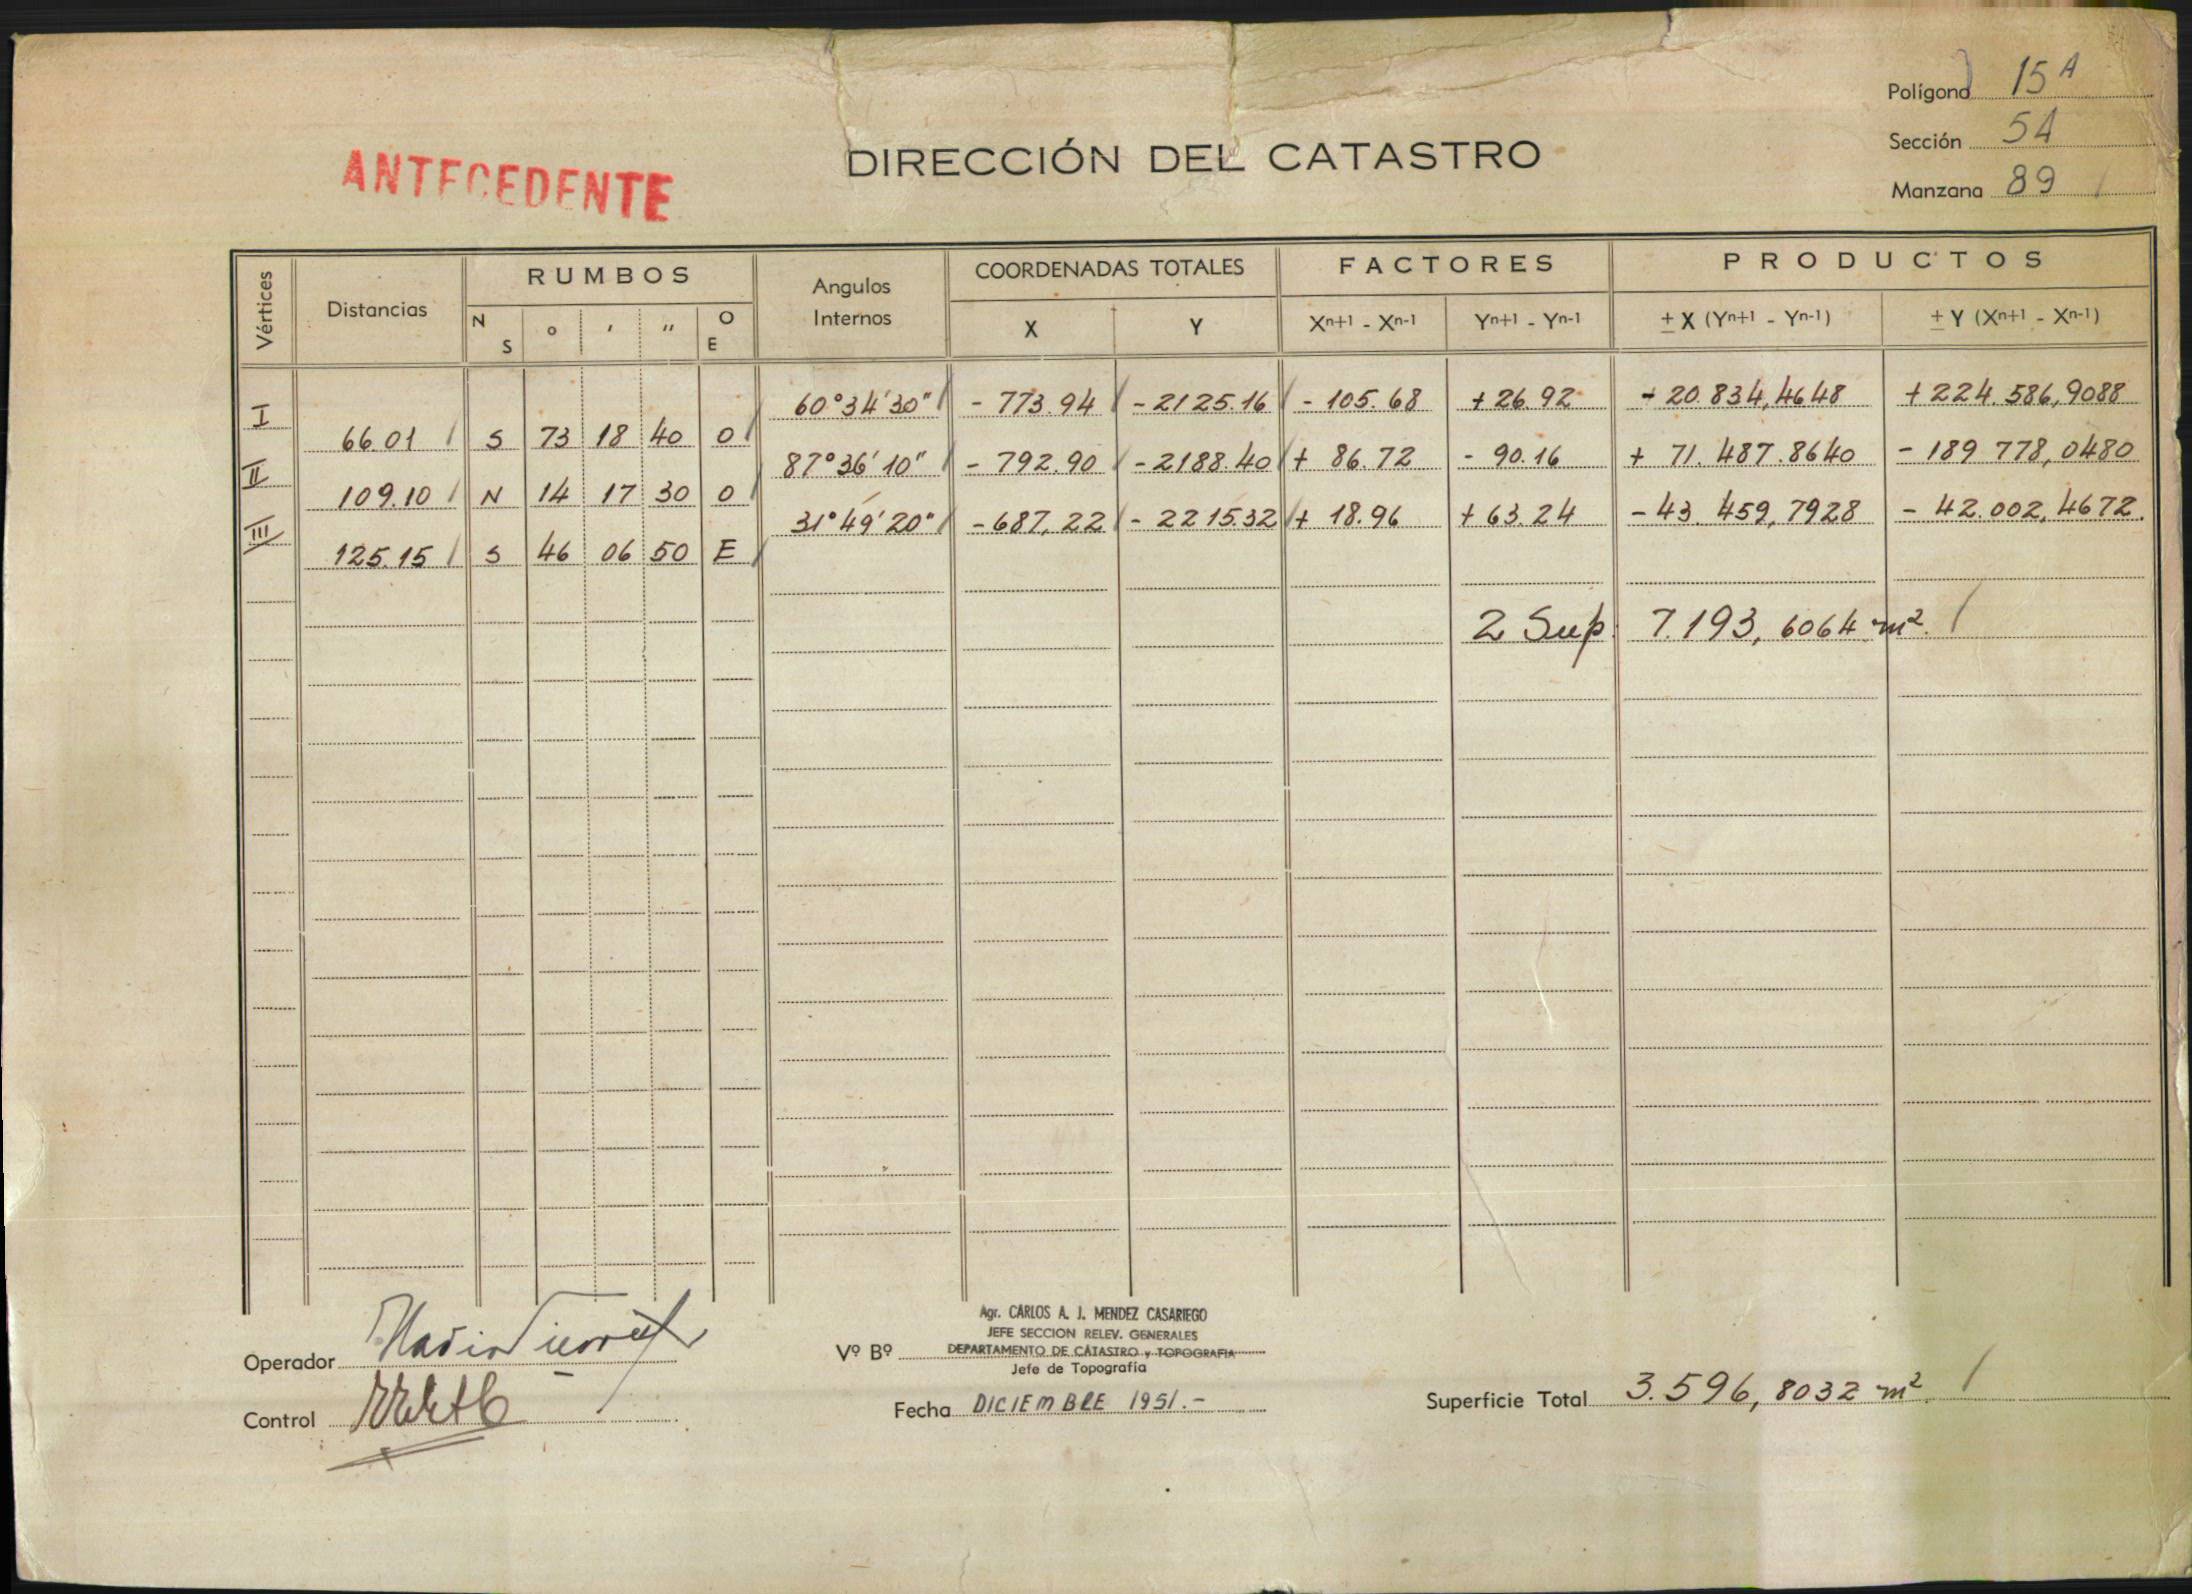 Polígono 15 A
Sección 54
Manzana 89
ANTECEDENTE
DIRECCIÓN DEL CATASTRO
Vértices Distancias RUMBOS Angulos Internos COORDENADAS TOTALES FACTORES PRODUCTOS
N S ° ' " O E X Y Xn+1 - Xn-1 Yn+1 - Yn-1 ± X (Yn+1 - Yn-1) ± Y (Xn+1 - Xn-1)
I 60°34'30" - 773.94 - 2125.16 - 105.68 + 26.92 - 20.834,4648 + 224.586,9088
66.01 S 73 18 40 O
II 87°36'10" - 792.90 - 2188.40 + 86.72 - 90.16 + 71.487.8640 - 189 778,0480
109.10 N 14 17 30 O
III 31°49'20" - 687,22 - 2215.32 + 18.96 + 63.24 - 43.459,7928 - 42.002,4672.
125.15 S 46 06 50 E
2 Sup. 7.193,6064 m².
Agr. CARLOS A. J. MENDEZ CASARIEGO
JEFE SECCION RELEV. GENERALES
Operador Vº Bº DEPARTAMENTO DE CATASTRO y TOPOGRAFIA
Jefe de Topografía
Control Fecha DICIEMBRE 1951.- Superficie Total 3.596,8032 m².